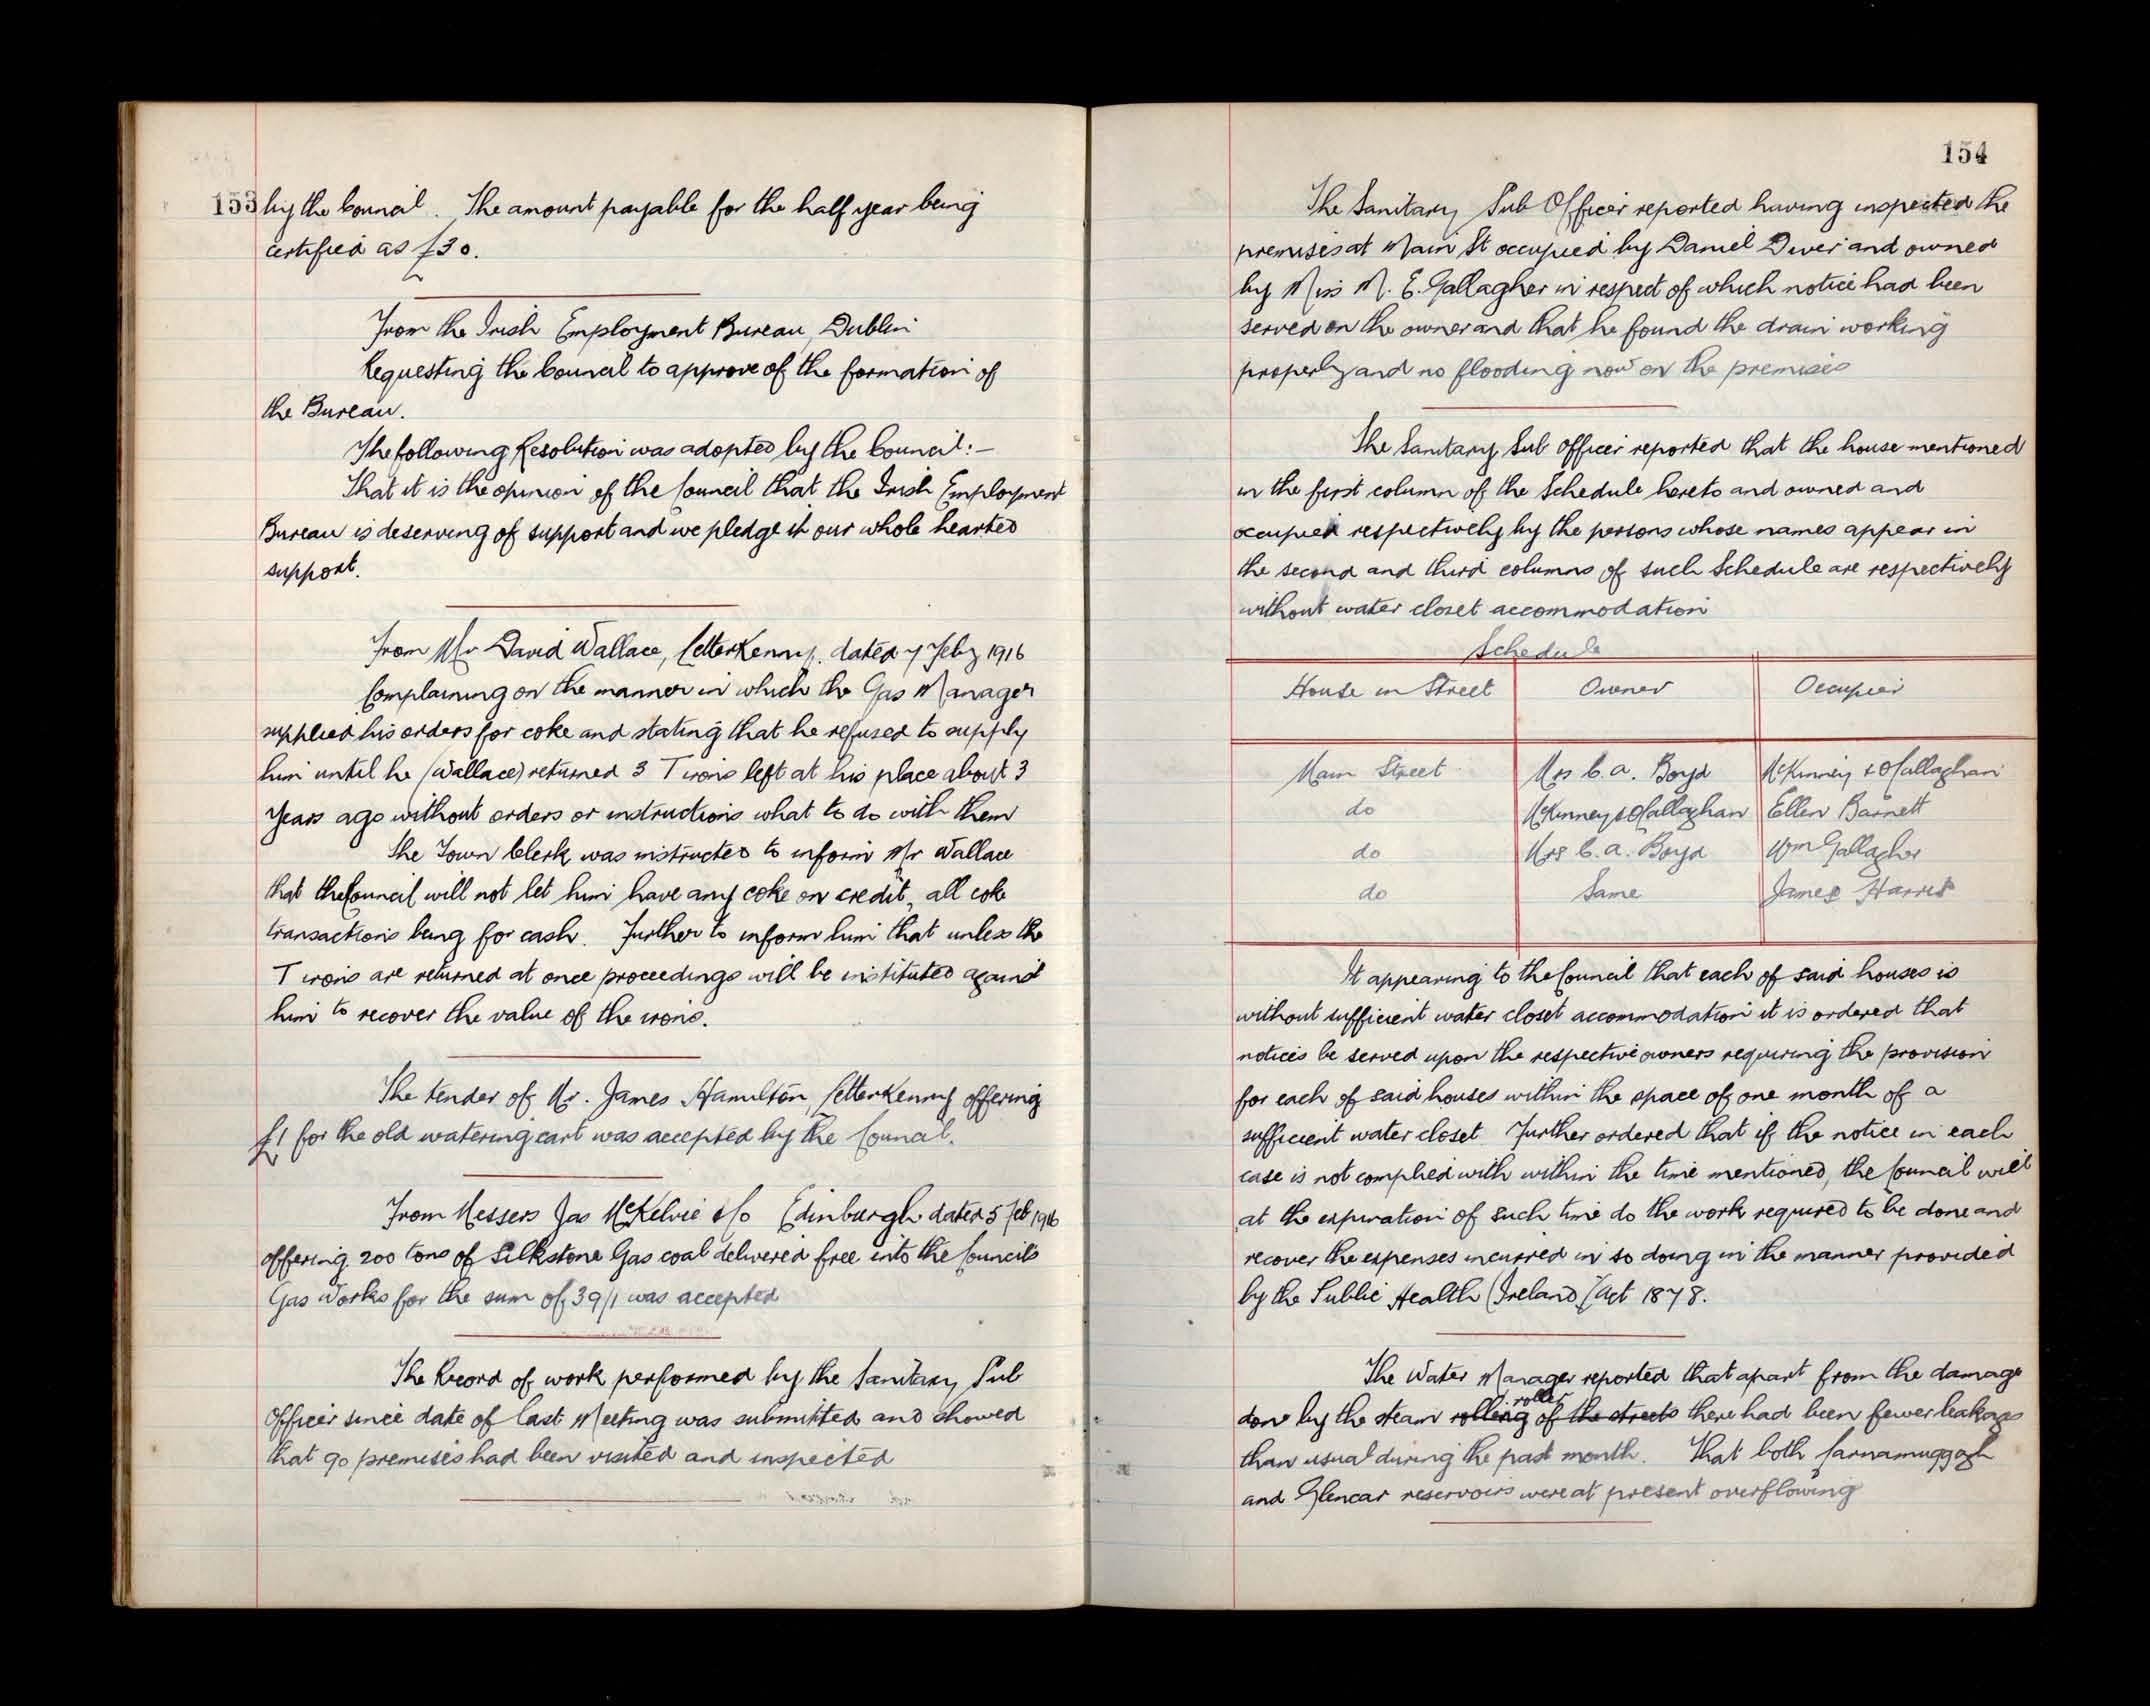 153
by the Council. The amount payable for the half year being
certified as £30.
From the Irish Employment Bureau, Dublin
Requesting the Council to approve of the formation of
the Bureau.
The following Resolution was adopted by the Council:—
That it is the opinion of the Council that the Irish Employment
Bureau is deserving of support and we pledge it our whole hearted
support.
From Mr David Wallace, Letterkenny, dated 7 Feby 1916
Complaining on the manner in which the Gas Manager
supplied his orders for coke and stating that he refused to supply
him until he (Wallace) returned 3 T irons left at his place about 3
years ago without orders or instructions what to do with them
The Town Clerk was instructed to inform Mr Wallace
that the Council will not let him have any coke on credit, all coke
transactions being for cash. Further to inform him that unless the
T irons are returned at once proceedings will be instituted against
him to recover the value of the irons.
The tender of Mr. James Hamilton, Letterkenny offering
£1 for the old watering cart was accepted by the Council.
From Messers Jas McKelvie & Co Edinburgh dated 5 Feb 1916
offering 200 tons of Silkstone Gas coal delivered free into the Councils
Gas Works for the sum of 39/1 was accepted
The Record of work performed by the Sanitary Sub
Officer since date of last Meeting was submitted and showed
that 90 premises had been visited and inspected
154
The Sanitary Sub Officer reported having inspected the
premises at Main St occupied by Daniel Diver and owned
by Miss M. E. Gallagher in respect of which notice had been
served on the owner and that he found the drain working
properly and no flooding now on the premises
The Sanitary Sub Officer reported that the house mentioned
in the first column of the Schedule hereto and owned and
occupied respectively by the persons whose names appear in
the second and third columns of such Schedule are respectively
without water closet accommodation
Schedule
House in Street Owner Occupier
Main Street Mrs C. A. Boyd McKinney & O'Callaghan
do McKinney & O'Callaghan Ellen Barnett
do Mrs C. A. Boyd Wm Gallagher
do Same James Harris
It appearing to the Council that each of said houses is
without sufficient water closet accommodation it is ordered that
notices be served upon the respective owners requiring the provision
for each of said houses within the space of one month of a
sufficient water closet Further ordered that if the notice in each
case is not complied with within the time mentioned, the Council will
at the expiration of such time do the work required to be done and
recover the expenses incurred in so doing in the manner provided
by the Public Health (Ireland) Act 1878.
The Water Manager reported that apart from the damage
roller
done by the steam rolling of the streets there had been fewer leakages
than usual during the past month. That both Carnamuggagh
and Glencar reservoirs were at present overflowing